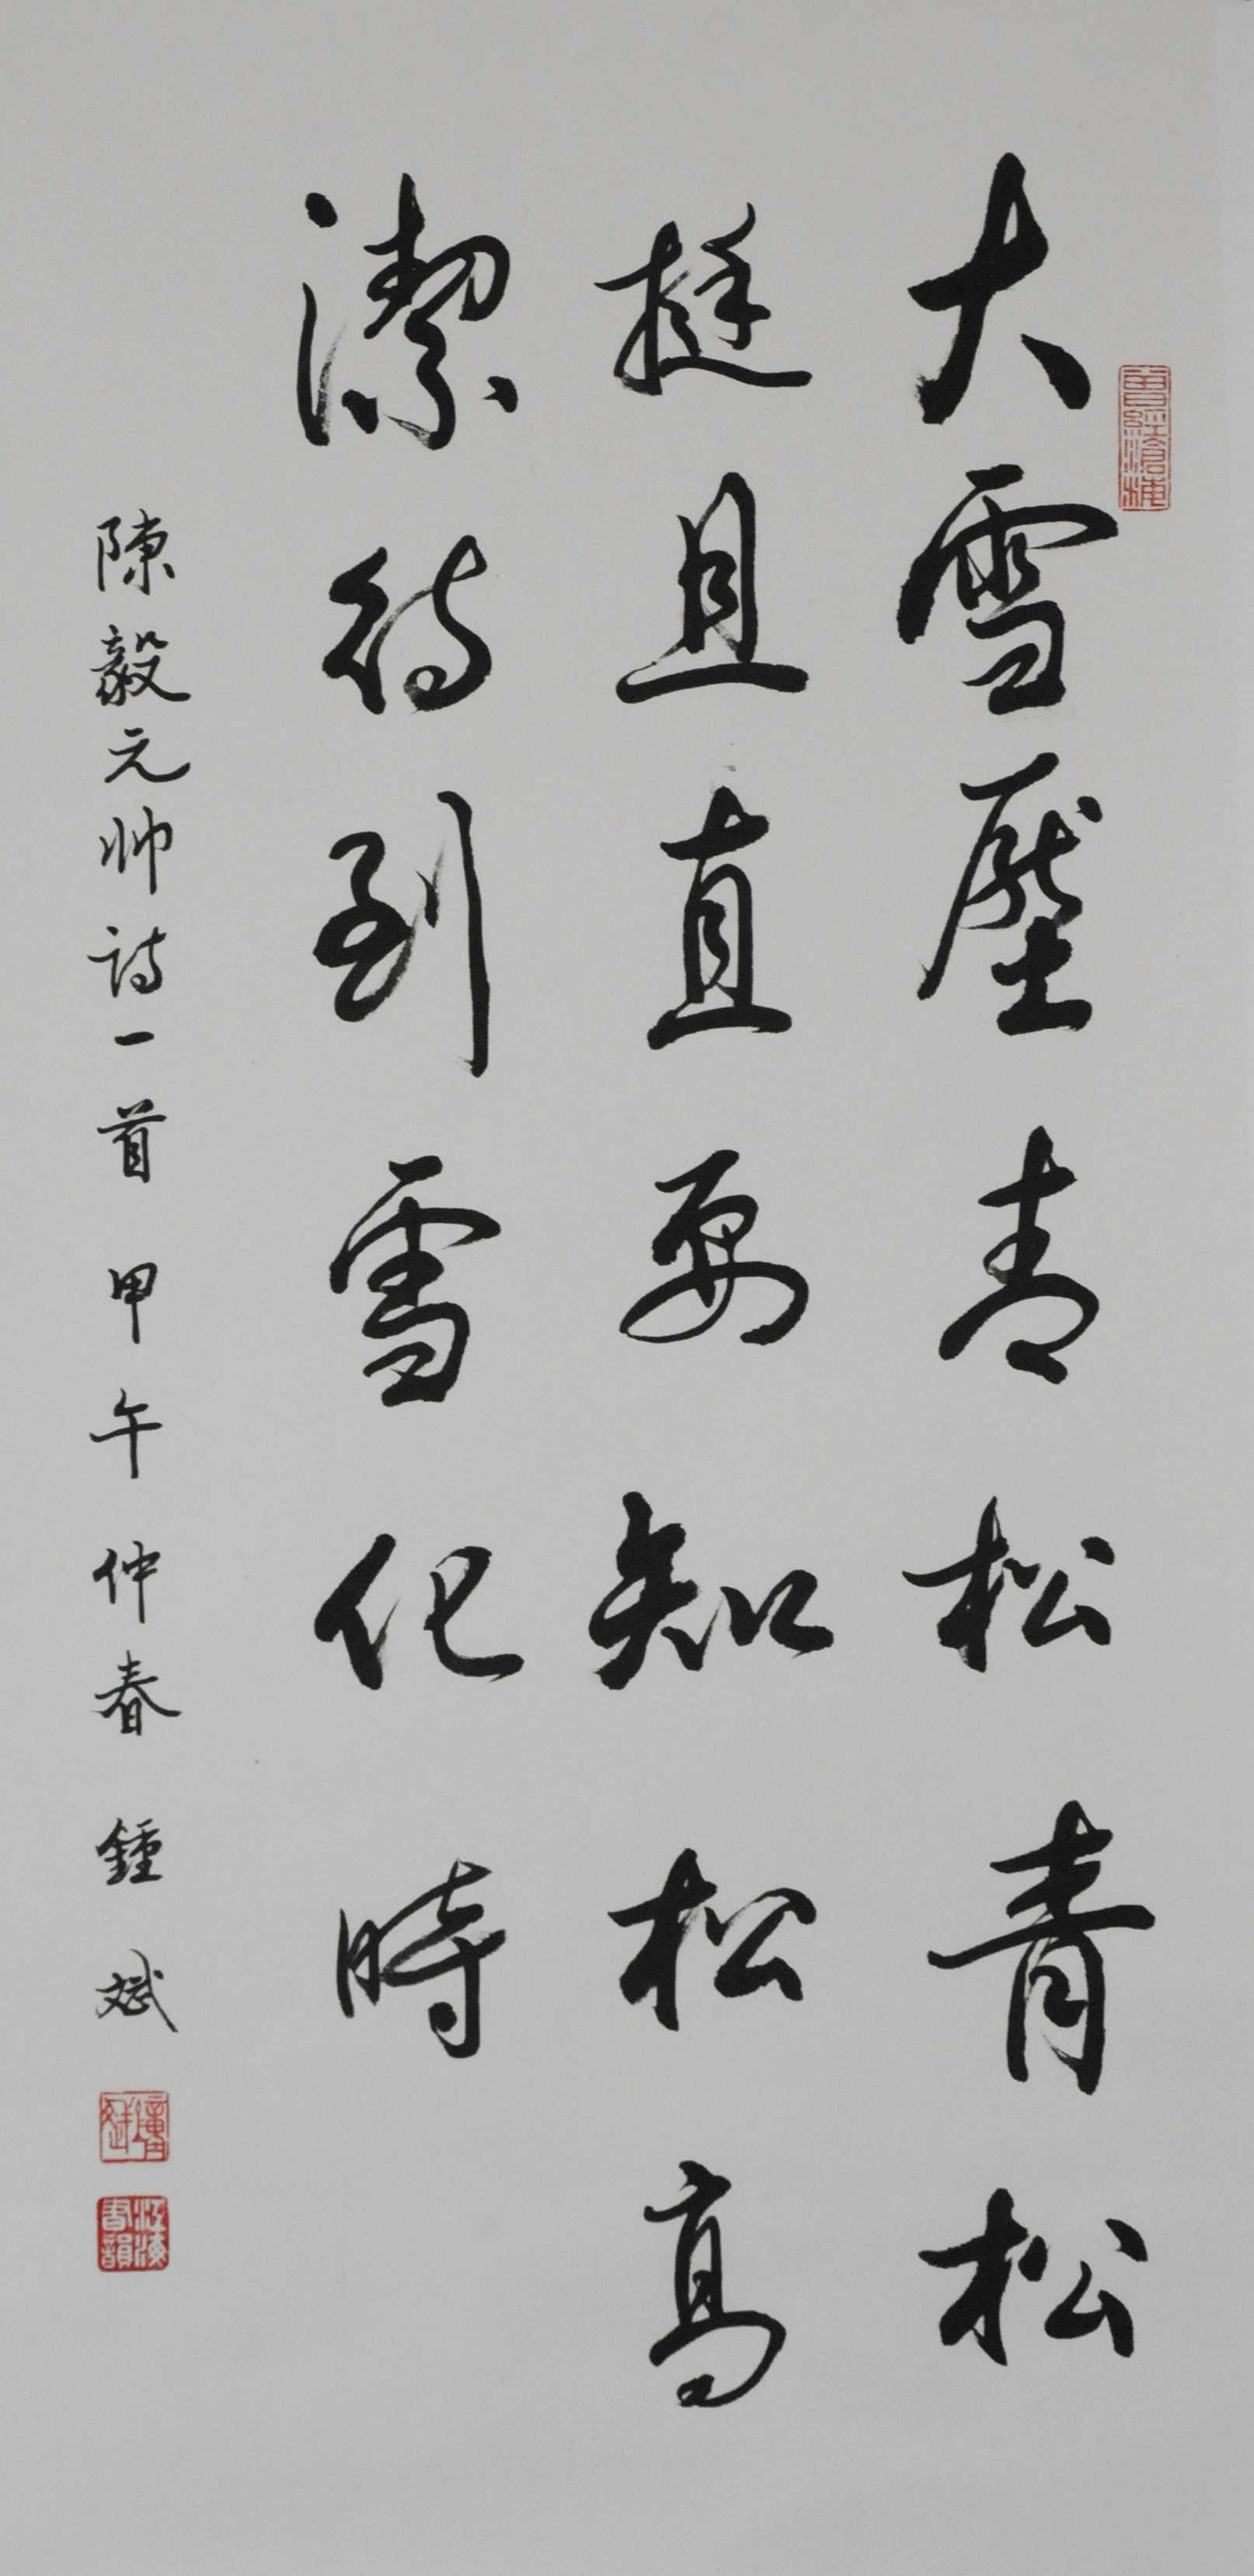 大雪壓青松青松
挺且直要知松高
潔待到雪化時
陳毅元帅詩一首 甲午仲春 鍾斌